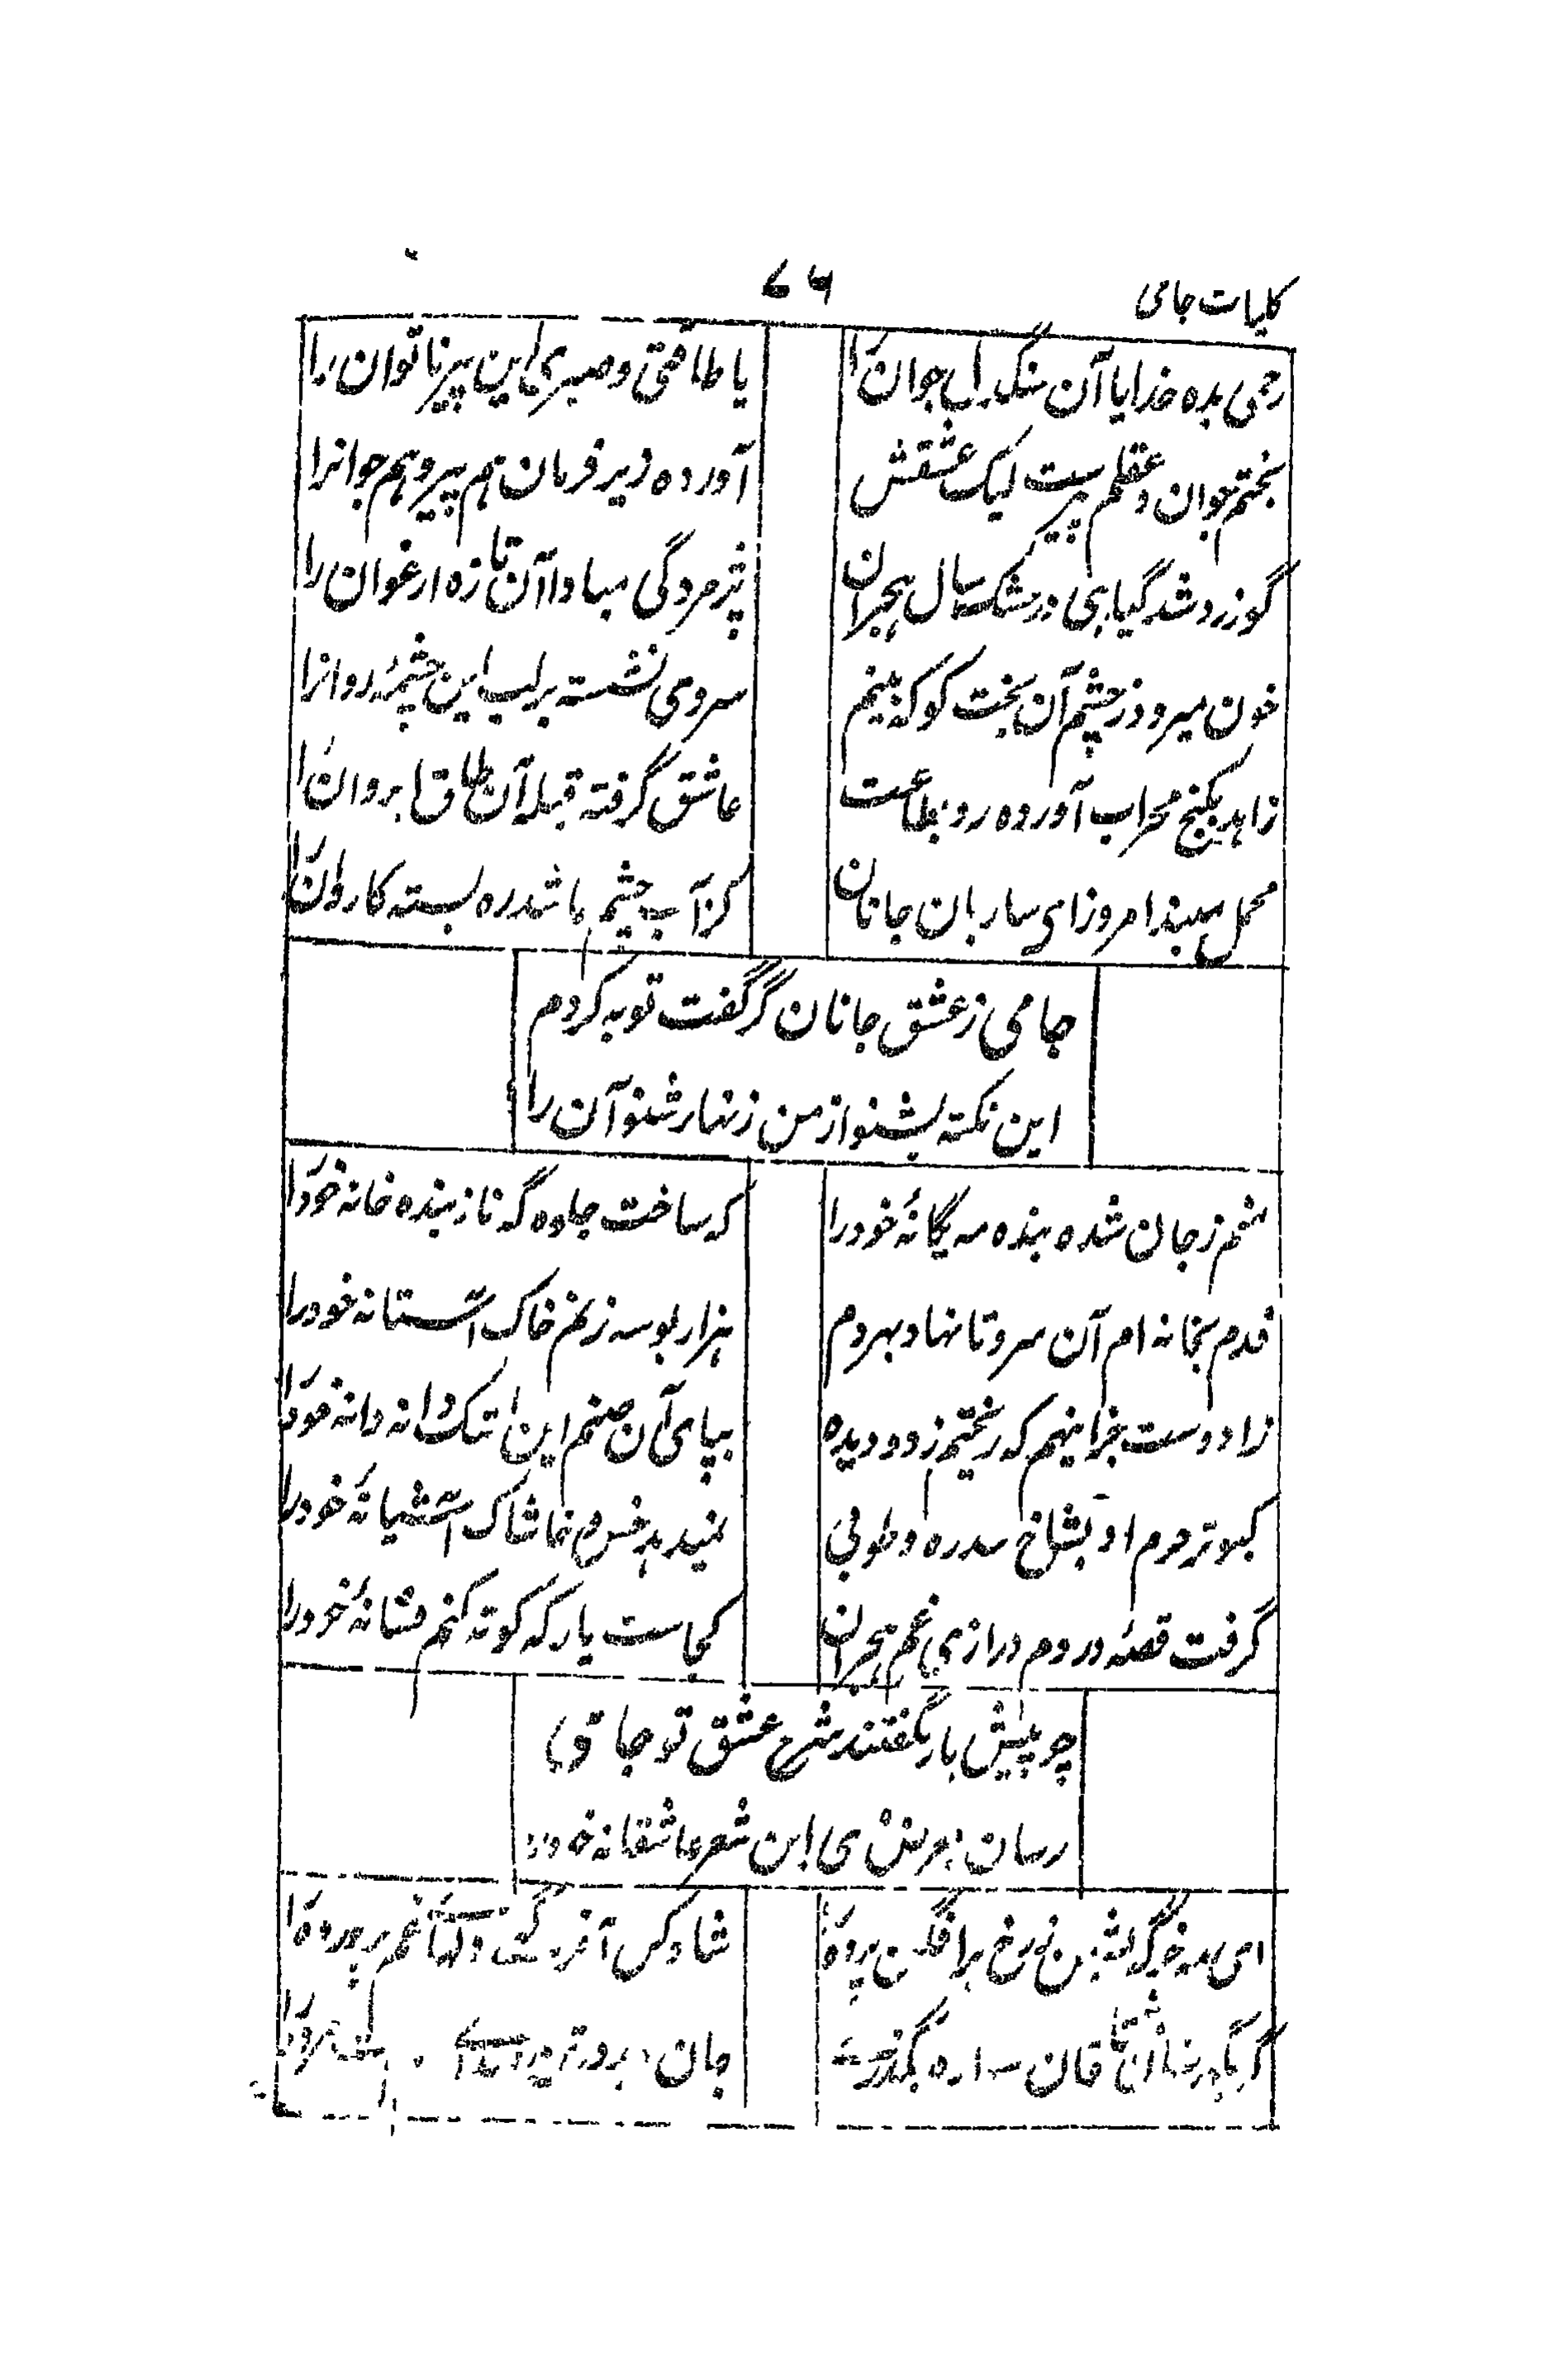 کلیات جامی
۷۶
رحمی بده خدایا آن سنگدل جوان را
یا طاقتی و صبری این پیر ناتوان را
بختم جوان و عقلم پیرست لیک عشقش
آورده زیر فرمان هم پیر و هم جوانرا
گو زرد شد گیاهی در خشک سال هجران
پژمردگی مبادا آن تازه ارغوان را
خون میرود ز چشم آن بخت کو که بینم
سروی نشسته بر لب این چشمهٔ روانرا
زاهد بکنج محراب آورده رو بطاعت
عاشق گرفته قبله آن طاق ابروان را
محمل مبند امروز ای ساربان جانان
کز آب چشم ما شد ره بسته کاروان را
جامی ز عشق جانان گر گفت توبه کردم
این نکته بشنو از من زنهار مشنو آن را
منم ز جان شده بنده مه یگانهٔ خود را
که ساخت جلوه گه ناز بنده خانه خود را
قدم بخانه ام آن سرو تا نهاد بهر دم
هزار بوسه زنم خاک آستانه خود را
بپای آن صنم این اشک دانه دانه خود را
کبوتر حرم او بشاخ سدره و طوبی
خس و خاشاک آشیانهٔ خود را
گرفت قصهٔ دردم درازی غم هجران
کجاست یار که کوته کنم فسانهٔ خود را
چو پیش یار بگفتند شرح عشق تو جامی
رسان این شعر عاشقانه خود را
ای مه رخ برافگن پرده را
شاد کن آخر غم پرورده را
جان